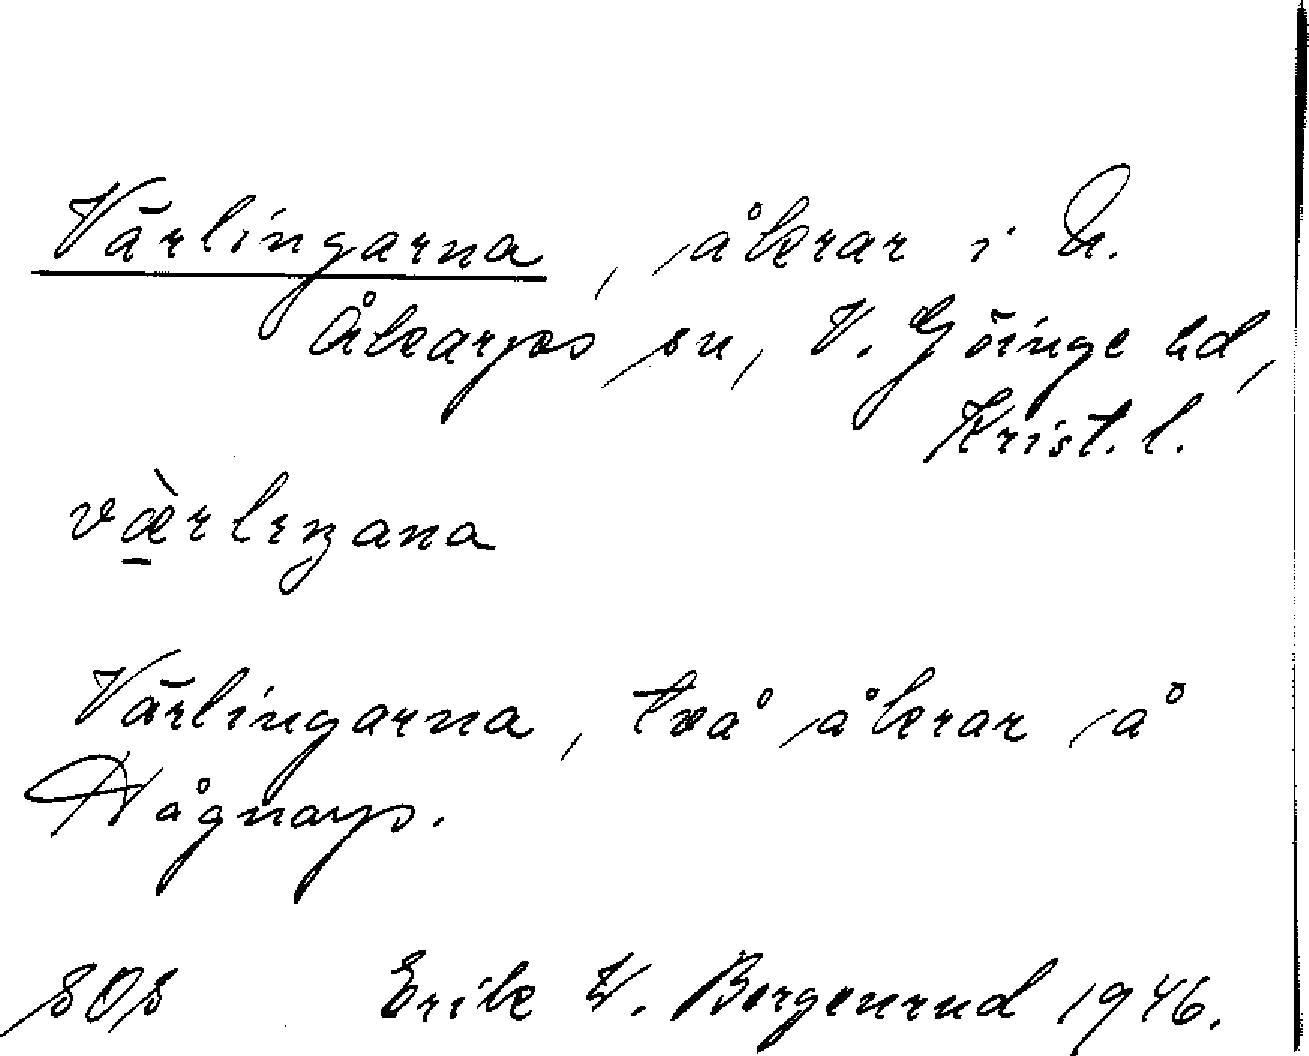 Värlingarna, åkrar i N.
Åkarps sn, V. Göinge hd,
Krist. l.
væ̀rlıŋana
Värlingarna, två åkrar å
Hågnarp.
SOS Erik W. Bergenrud 1946.